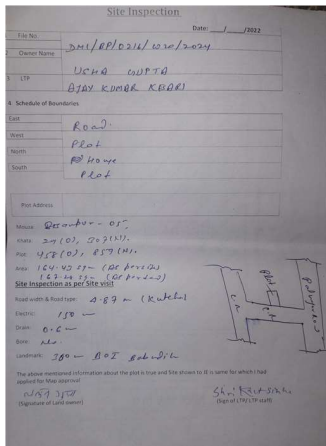 Site Inspection
Date: ___/___/2022
File No.
DMC/BP/0216/W20/2024
2 Owner Name
USHA GUPTA
3 LTP
AJAY KUMAR KESARI
4 Schedule of Boundaries
East
Road.
West
Plot
North
Home
South
Plot
Plot Address
Mouza:
05,
Khata: 29(O), 507(N).
Plot: 458(O), 857(N).
Area: 164.49 sqm (As per
167.24 sqm (As per
Site Inspection as Per Site visit
Road width & Road type: 4.87 m (Kutcha)
Electric: 150 m
Drain: 0.6 m
Bore: No.
Landmark: 300 m BOI
The above mentioned information about the plot is true and Site shown to JE is same for which I had
applied for Map approval
(Signature of Land owner)
(Sign of LTP/ LTP staff)
plot